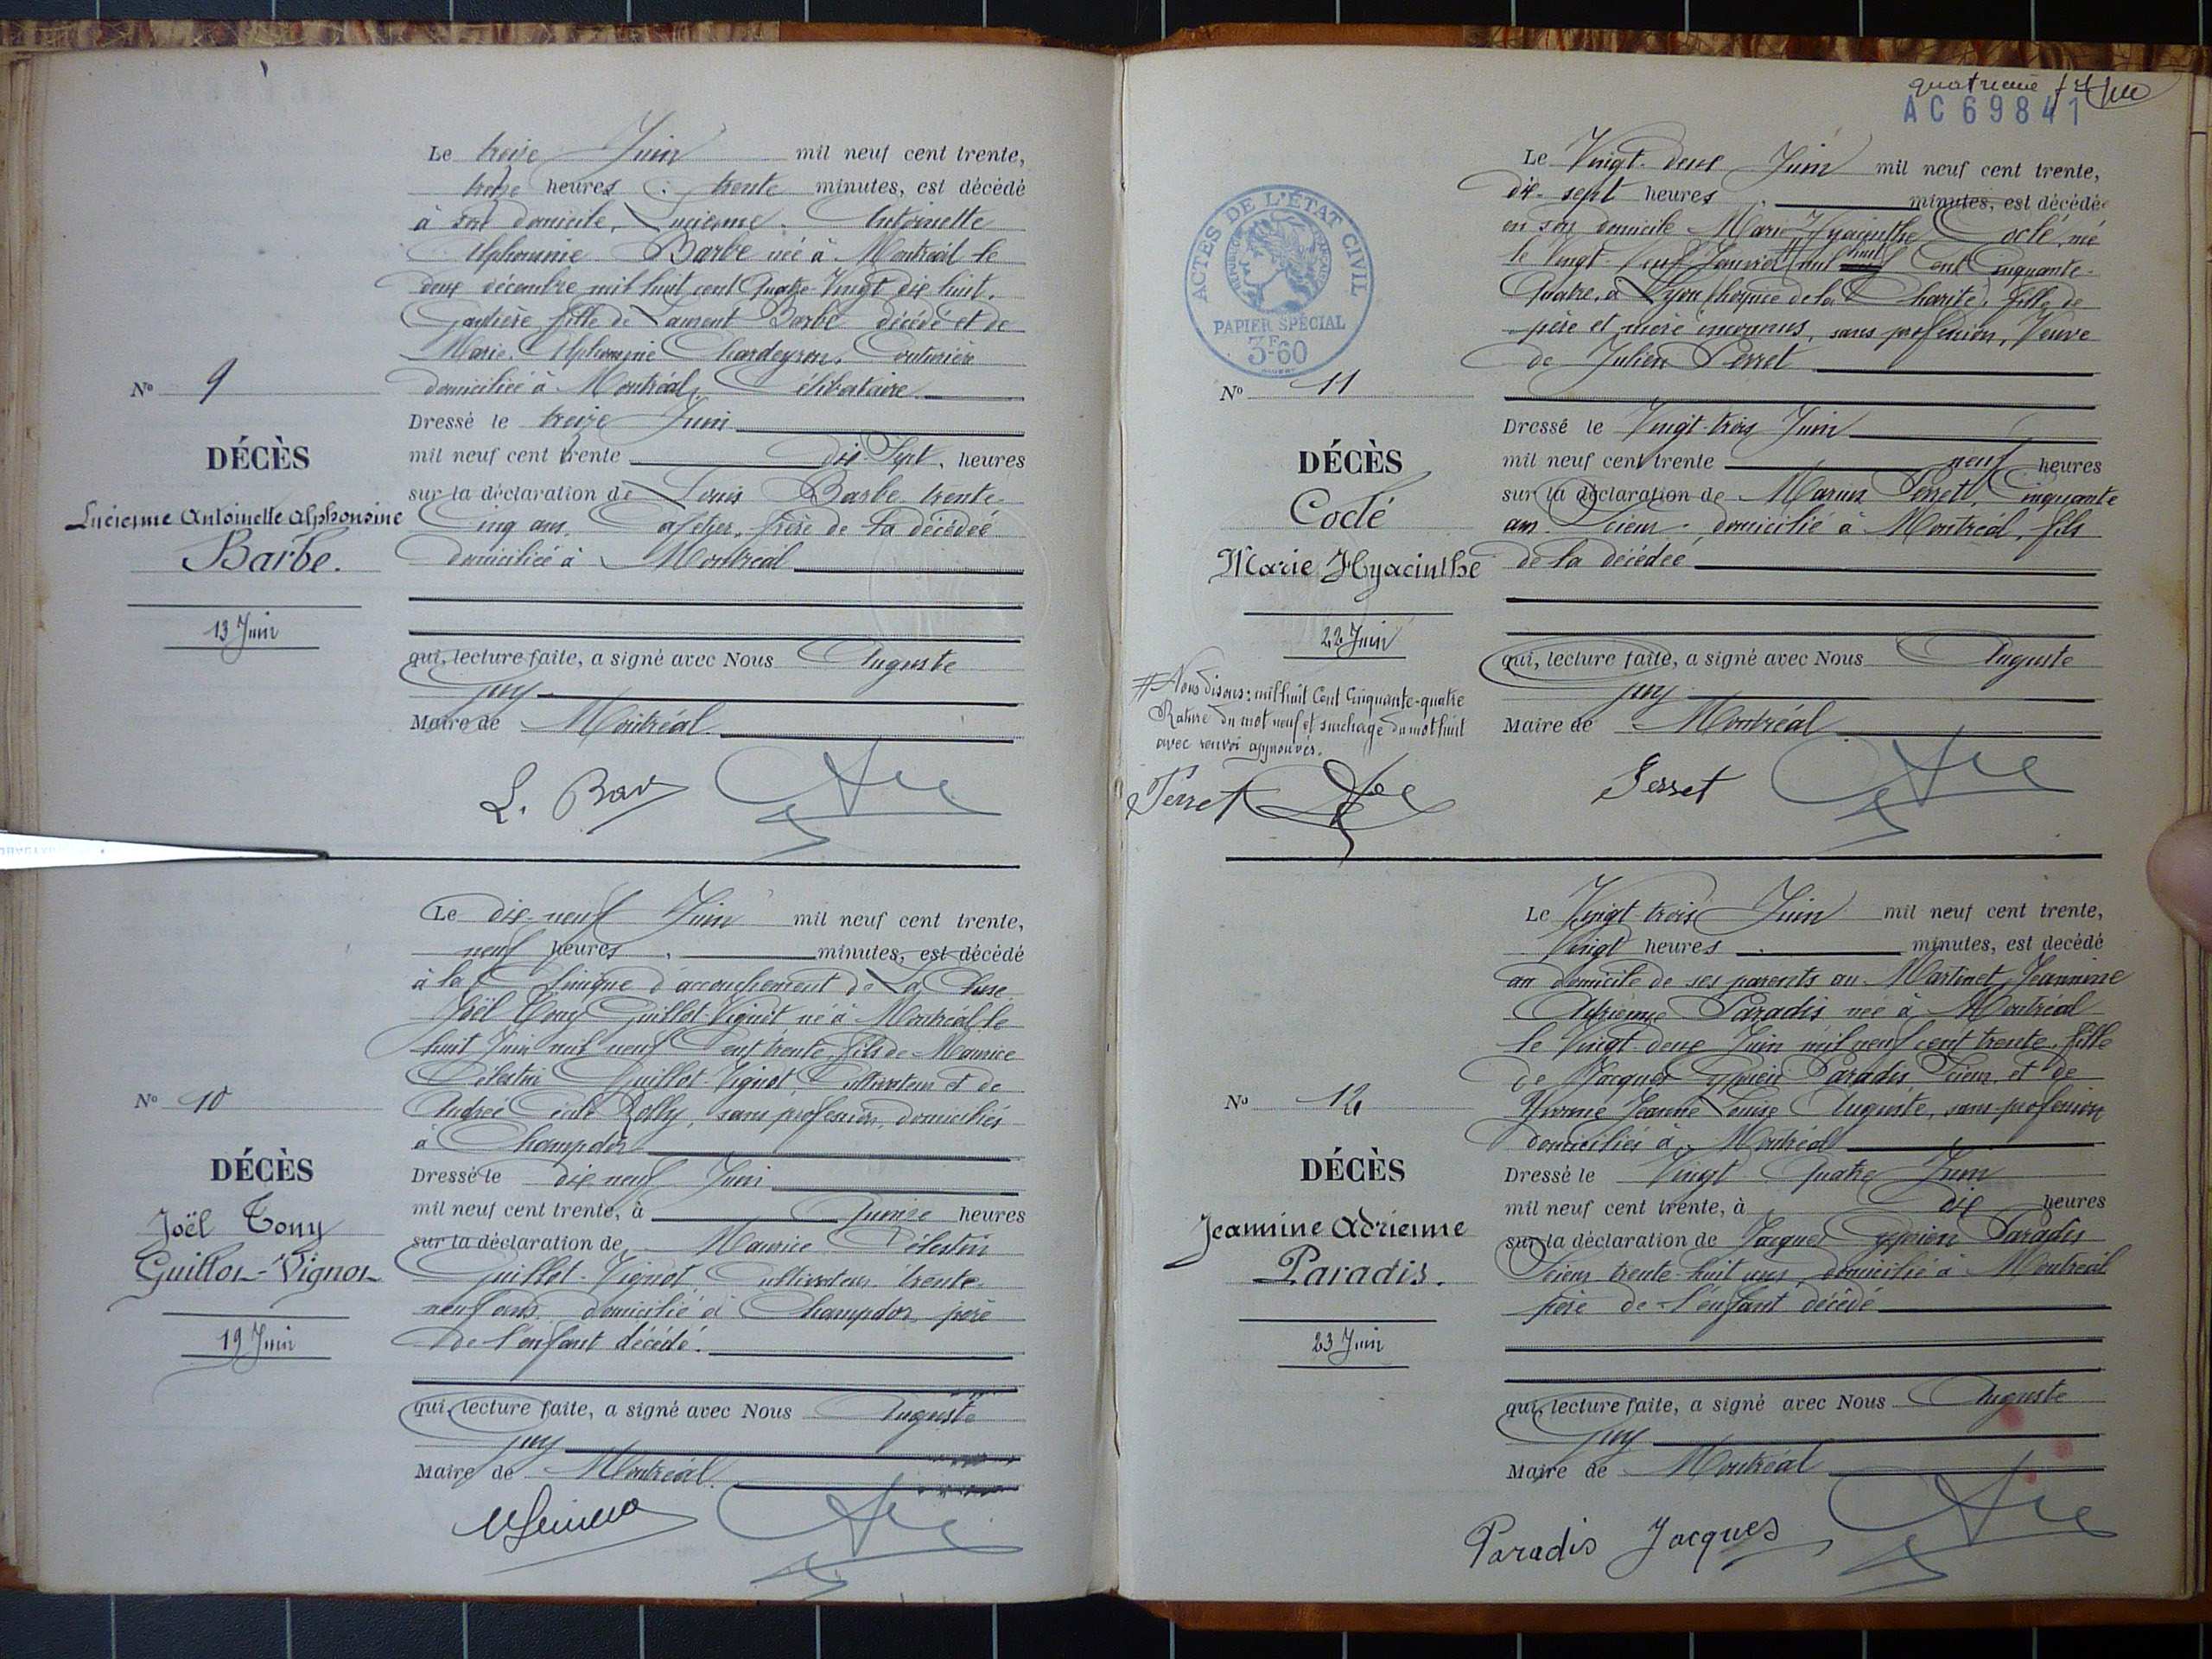 Le treize Juin mil neuf cent trente,
treize heures trente minutes, est décédé
à son domicile, Lucienne Antoinette
Alphonsine Barbe née à Montréal le
deux décembre mil huit cent Quatre-Vingt dix huit.
fille de Laurent Barbe décédé et de
Marie Alphonsine Chardeyron. Couturière
domiciliée à Montréal, Célibataire
Nº 9
DÉCÈS
Lucienne Antoinette Alphonsine
Barbe.
13 Juin
Dressé le treize Juin
mil neuf cent trente dix Sept. heures
sur la déclaration de Louis Barbe trente-
Cinq ans, Cafetier, frère de la décédée
domicilié à Montréal
qui, lecture faite, a signé avec Nous Auguste
Guy
Maire de Montréal
L. Bar
Le dix-neuf Juin mil neuf cent trente,
neuf heures minutes, est décédé
à la Clinique d'accouchement de La Cluse
Joël Tony Guillot-Vignot né à Montréal le
huit Juin mil neuf Cent trente, fils de Maurice
Célestin Guillot-Vignot, Cultivateur et de
Andrée Cécile Rolly, sans profession, domiciliés
à Champdor
Nº 10
DÉCÈS
Joël Tony
Guillot-Vignot
19 Juin
Dressé le dix neuf Juin
mil neuf cent trente, à Quinze heures
sur la déclaration de Maurice Célestin
Guillot-Vignot, Cultivateur trente-
neuf ans domicilié à Champdor, père
de l'enfant décédé.
qui, lecture faite, a signé avec Nous Auguste
Guy
Maire de Montréal.
quatrième
AC69841
ACTES DE L'ÉTAT CIVIL
RÉPUBLIQUE FRANÇAISE
PAPIER SPÉCIAL
3F.60
Le Vingt-deux Juin mil neuf cent trente,
dix-sept heures minutes, est décédée
en son domicile Marie Hyacinthe Coclé, né
le Vingt-neuf Janvier # mil huit Cent Cinquante-
Quatre, à Lyon hospice de la Charité, fille de
père et mère inconnus, sans profession, Veuve
de Julien Perret
Nº 11
DÉCÈS
Coclé
Marie Hyacinthe
22 Juin
# Nous disons: mil huit Cent Cinquante-quatre
Rature du mot neuf et surchage du mot huit
avec renvoi approuvés.
Perret
Dressé le Vingt-trois Juin
mil neuf cent trente neuf heures
sur la déclaration de Marius Perret Cinquante
ans Scieur, domicilié à Montréal, fils
de la décédée
qui, lecture faite, a signé avec Nous Auguste
Guy
Maire de Montréal
Perret
Le Vingt-trois Juin mil neuf cent trente,
Vingt heures minutes, est décédé
au domicile de ses parents au Martinet, Jeannine
Adrienne Paradis née à Montréal
le Vingt-deux Juin mil neuf cent trente, fille
de Jacques Cyprien Paradis Scieur et de
Yvonne Jeanne Louise Auguste, sans profession
domiciliés à Montréal
Nº 12
DÉCÈS
Jeannine Adrienne
Paradis.
23 Juin
Dressé le Vingt Quatre Juin
mil neuf cent trente, à dix heures
sur la déclaration de Jacques Cyprien Paradis
Scieur trente-huit ans, domicilié à Montréal
père de l'enfant décédé
qui, lecture faite, a signé avec Nous Auguste
Guy
Maire de Montréal
Paradis Jacques